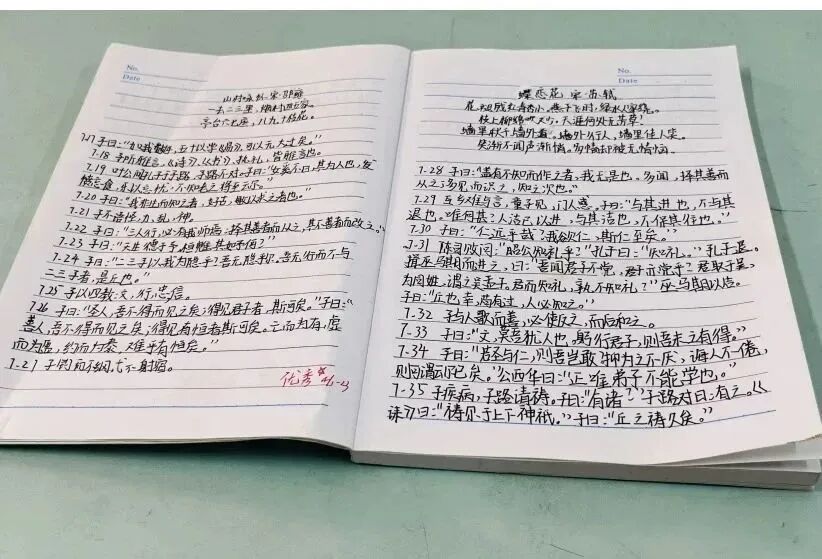 No.
Date
山村咏怀 宋·邵雍
一去二三里，烟村四五家。
亭台六七座，八九十枝花。
7·17 子曰："加我数年，五十以学《易》，可以无大过矣。"
7·18 子所雅言，《诗》、《书》、执礼，皆雅言也。
7·19 叶公问孔子于子路，子路不对。子曰："女奚不曰，其为人也，发
愤忘食，乐以忘忧，不知老之将至云尔。"
7·20 子曰："我非生而知之者，好古，敏以求之者也。"
7·21 子不语怪，力，乱，神。
7·22 子曰："三人行，必有我师焉；择其善者而从之，其不善者而改之。"
7·23 子曰："天生德于予，桓魋其如予何？"
7·24 子曰："二三子以我为隐乎？吾无隐乎尔。吾无行而不与
二三子者，是丘也。"
7·25 子以四教：文，行，忠，信。
7·26 子曰："圣人，吾不得而见之矣；得见君子者，斯可矣。"子曰："
善人，吾不得而见之矣；得见有恒者斯可矣。亡而为有，虚
而为盈，约而为泰，难乎有恒矣。"
7·27 子钓而不纲，弋不射宿。
优秀
No.
Date
蝶恋花 宋·苏轼
花褪残红青杏小。燕子飞时，绿水人家绕。
枝上柳绵吹又少，天涯何处无芳草！
墙里秋千墙外道。墙外行人，墙里佳人笑。
笑渐不闻声渐悄。多情却被无情恼。
7·28 子曰："盖有不知而作之者，我无是也。多闻，择其善而
从之；多见而识之，知之次也。"
7·29 互乡难与言，童子见，门人惑。子曰："与其进也，不与其
退也。唯何甚？人洁己以进，与其洁也，不保其往也。"
7·30 子曰："仁远乎哉？我欲仁，斯仁至矣。"
7·31 陈司败问："昭公知礼乎？"孔子曰："知礼。"孔子退。
揖巫马期而进之，曰："吾闻君子不党，君子亦党乎？君取于吴，
为同姓，谓之吴孟子。君而知礼，孰不知礼？"巫马期以告。
子曰："丘也幸，苟有过，人必知之。"
7·32 子与人歌而善，必使反之，而后和之。
7·33 子曰："文，莫吾犹人也，躬行君子，则吾未之有得。"
7·34 子曰："若圣与仁，则吾岂敢！抑为之不厌，诲人不倦，
则可谓云尔已矣。"公西华曰："正唯弟子不能学也。"
7·35 子疾病，子路请祷。子曰："有诸？"子路对曰：有之。《
诔》曰："祷尔于上下神祇。"子曰："丘之祷久矣。"